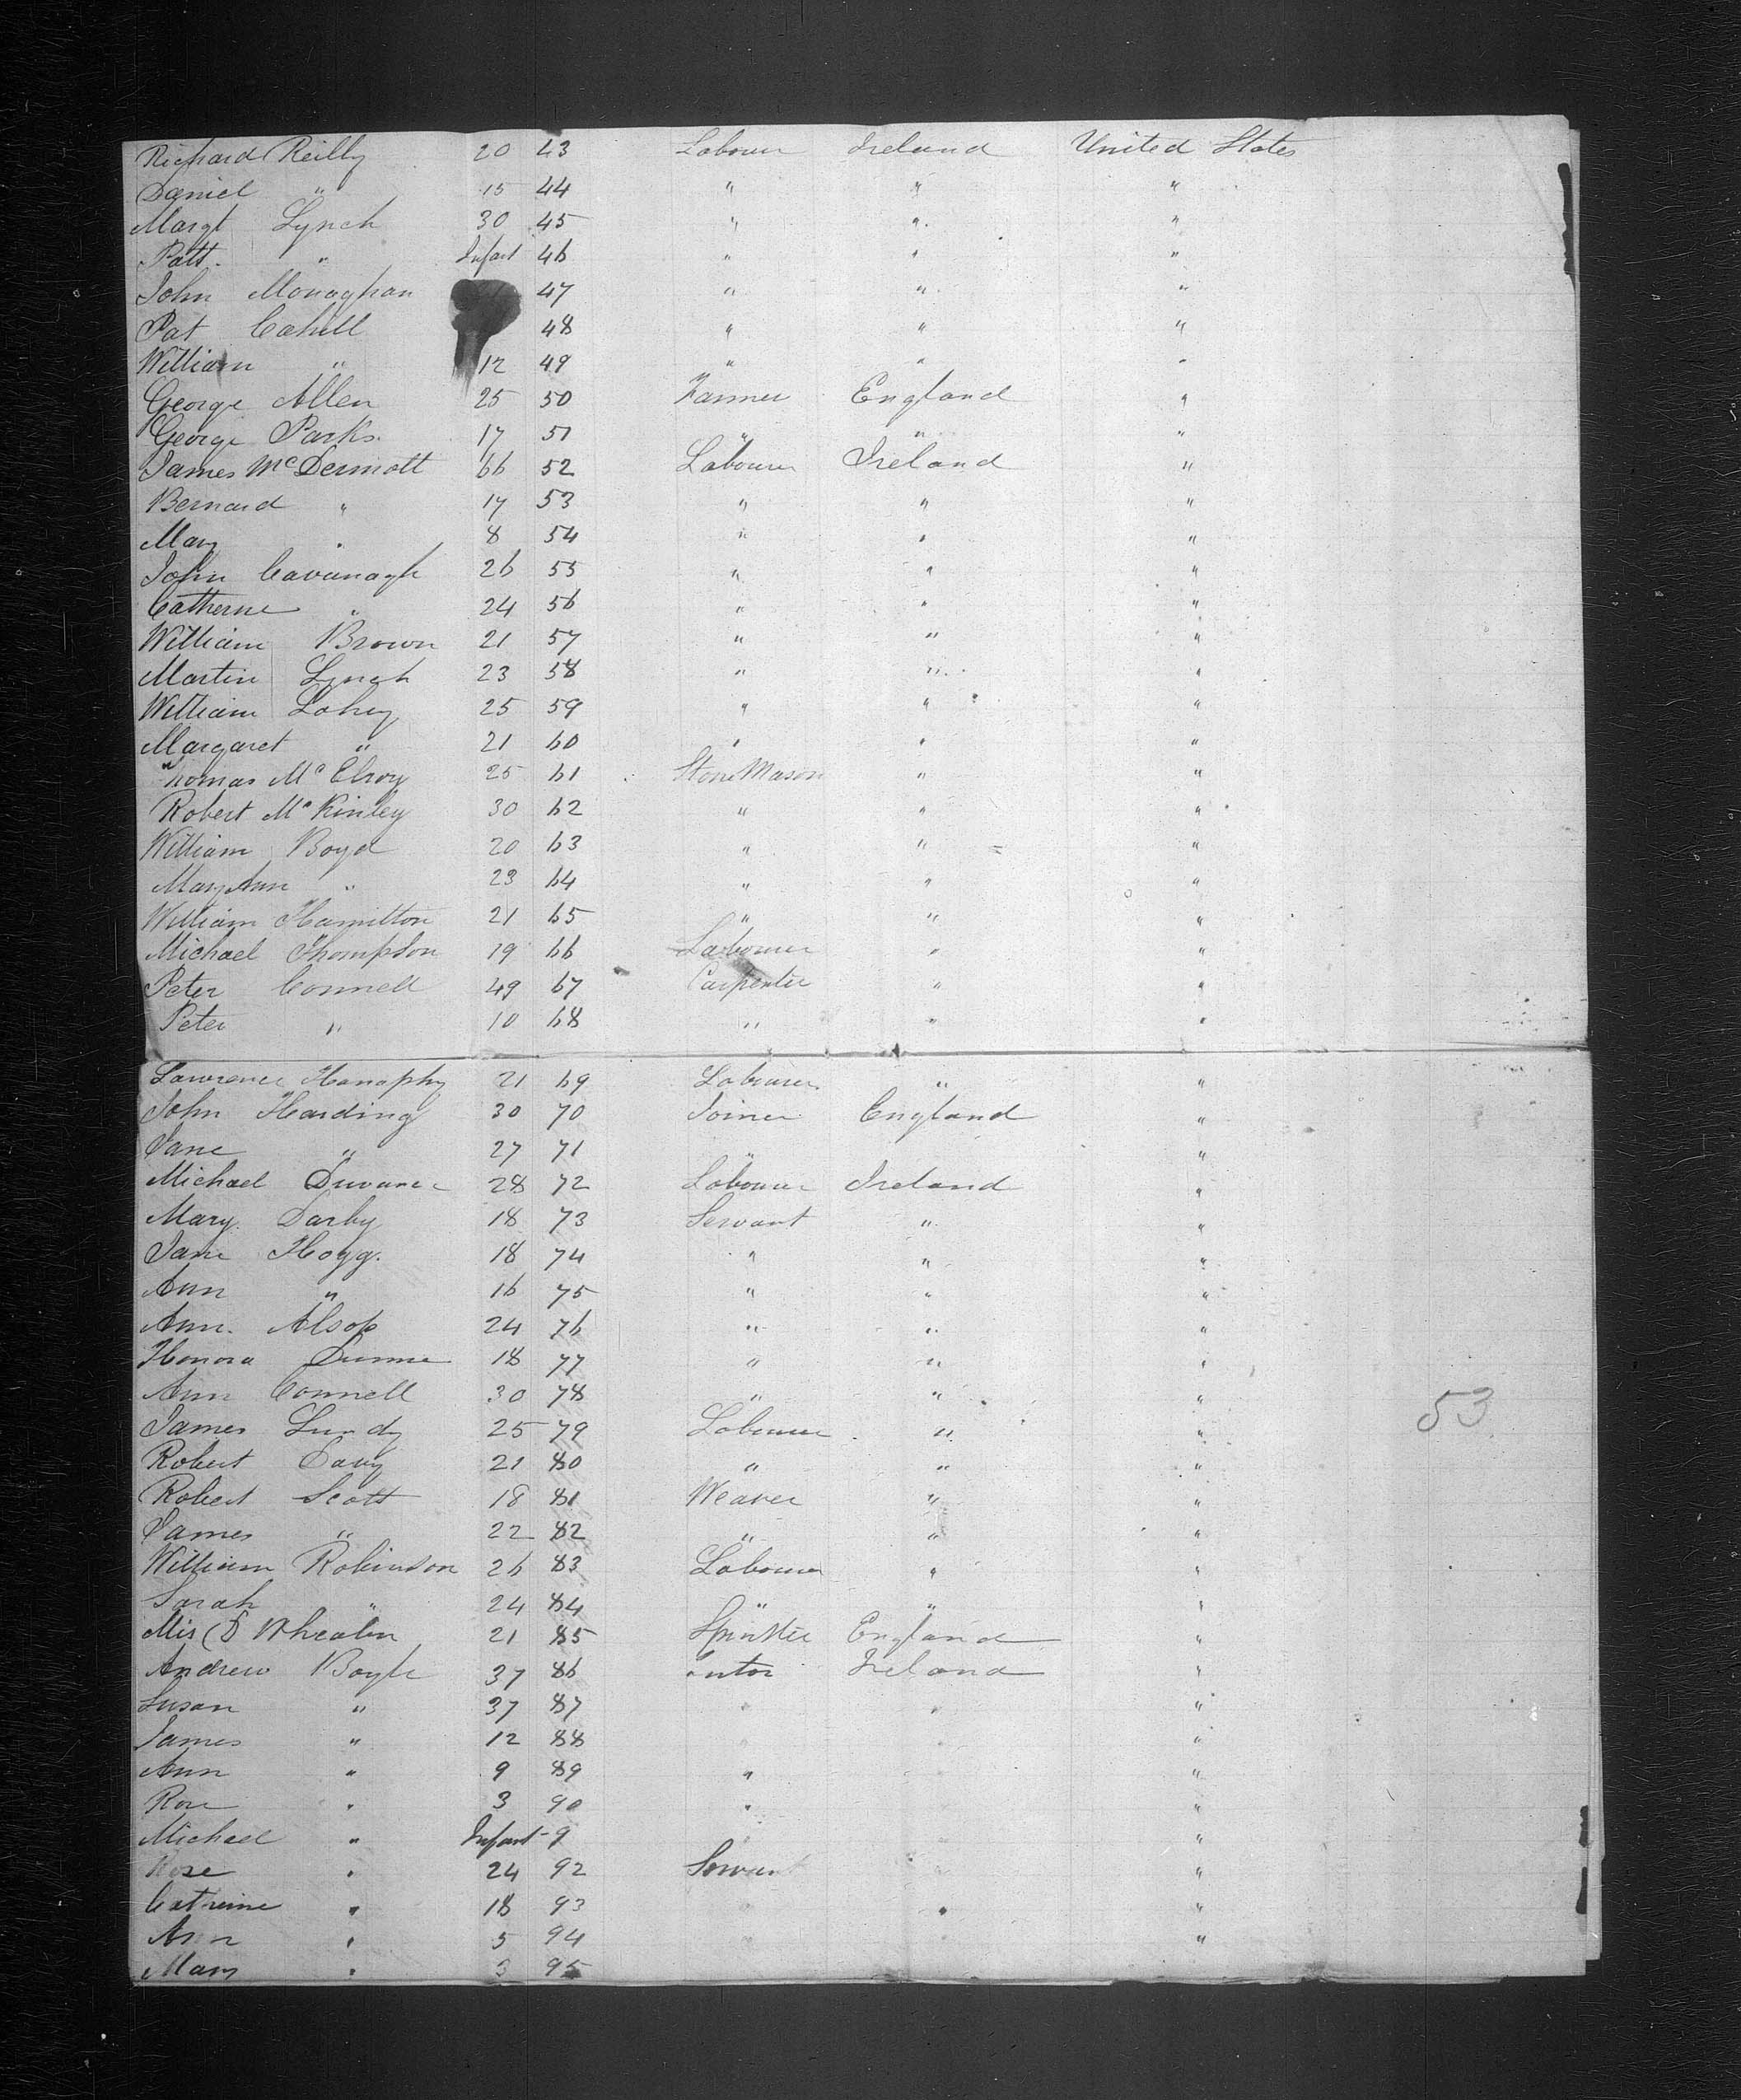 Richard Reilly 20 43 Labourer Ireland United States
Daniel " 15 44 " " "
Margt Lynch 30 45 " " "
Patt. " Infant 46 " " "
John Monaghan 47 " " "
Pat Cahill 48 " " "
William " 12 49 " " "
George Allen 25 50 Farmer England "
George Parks. 17 51 " " "
James McDermott 66 52 Labourer Ireland "
Bernard " 17 53 " " "
Mary " 8 54 " " "
John Cavanagh 26 55 " " "
Catherne " 24 56 " " "
William Brown 21 57 " " "
Martin Lynch 23 58 " " "
William Lahey 25 59 " " "
Margaret " 21 60 " " "
Thomas McElroy 25 61 Stone Mason " "
Robert McKinley 30 62 " " "
William Boyd 20 63 " " "
Mary Ann " 23 64 " " "
William Hamilton 21 65 " " "
Michael Thompson 19 66 Labourer " "
Peter Connell 49 67 Carpenter " "
Peter " 10 68 " " "
Lawrence Hanaphy 21 69 Labourer " "
John Harding 30 70 Joiner England "
Jane " 27 71 " "
Michael 28 72 Labourer Ireland "
Mary Darby 18 73 Servant " "
Jane Hogg. 18 74 " " "
Ann " 16 75 " " "
Ann. Alsop 24 76 " " "
Honora Dunne 18 77 " " "
Ann Connell 30 78 " " "
53
James Lundy 25 79 Labourer " "
Robert 21 80 " " "
Robert Scott 18 81 Weaver " "
James " 22 82 " " "
William Robinson 26 83 Labourer " "
Sarah " 24 84 " " "
Mis 21 85 Spinster England "
Andrew Boyle 37 86 Ireland "
Susan " 37 87 " " "
James " 12 88 " "
Ann " 9 89 " "
Rose " 3 90 " "
Michael " Infant 9 "
Rose " 24 92 Servant "
Catrine " 18 93 " "
Ann " 5 94 "
Mary " 3 95